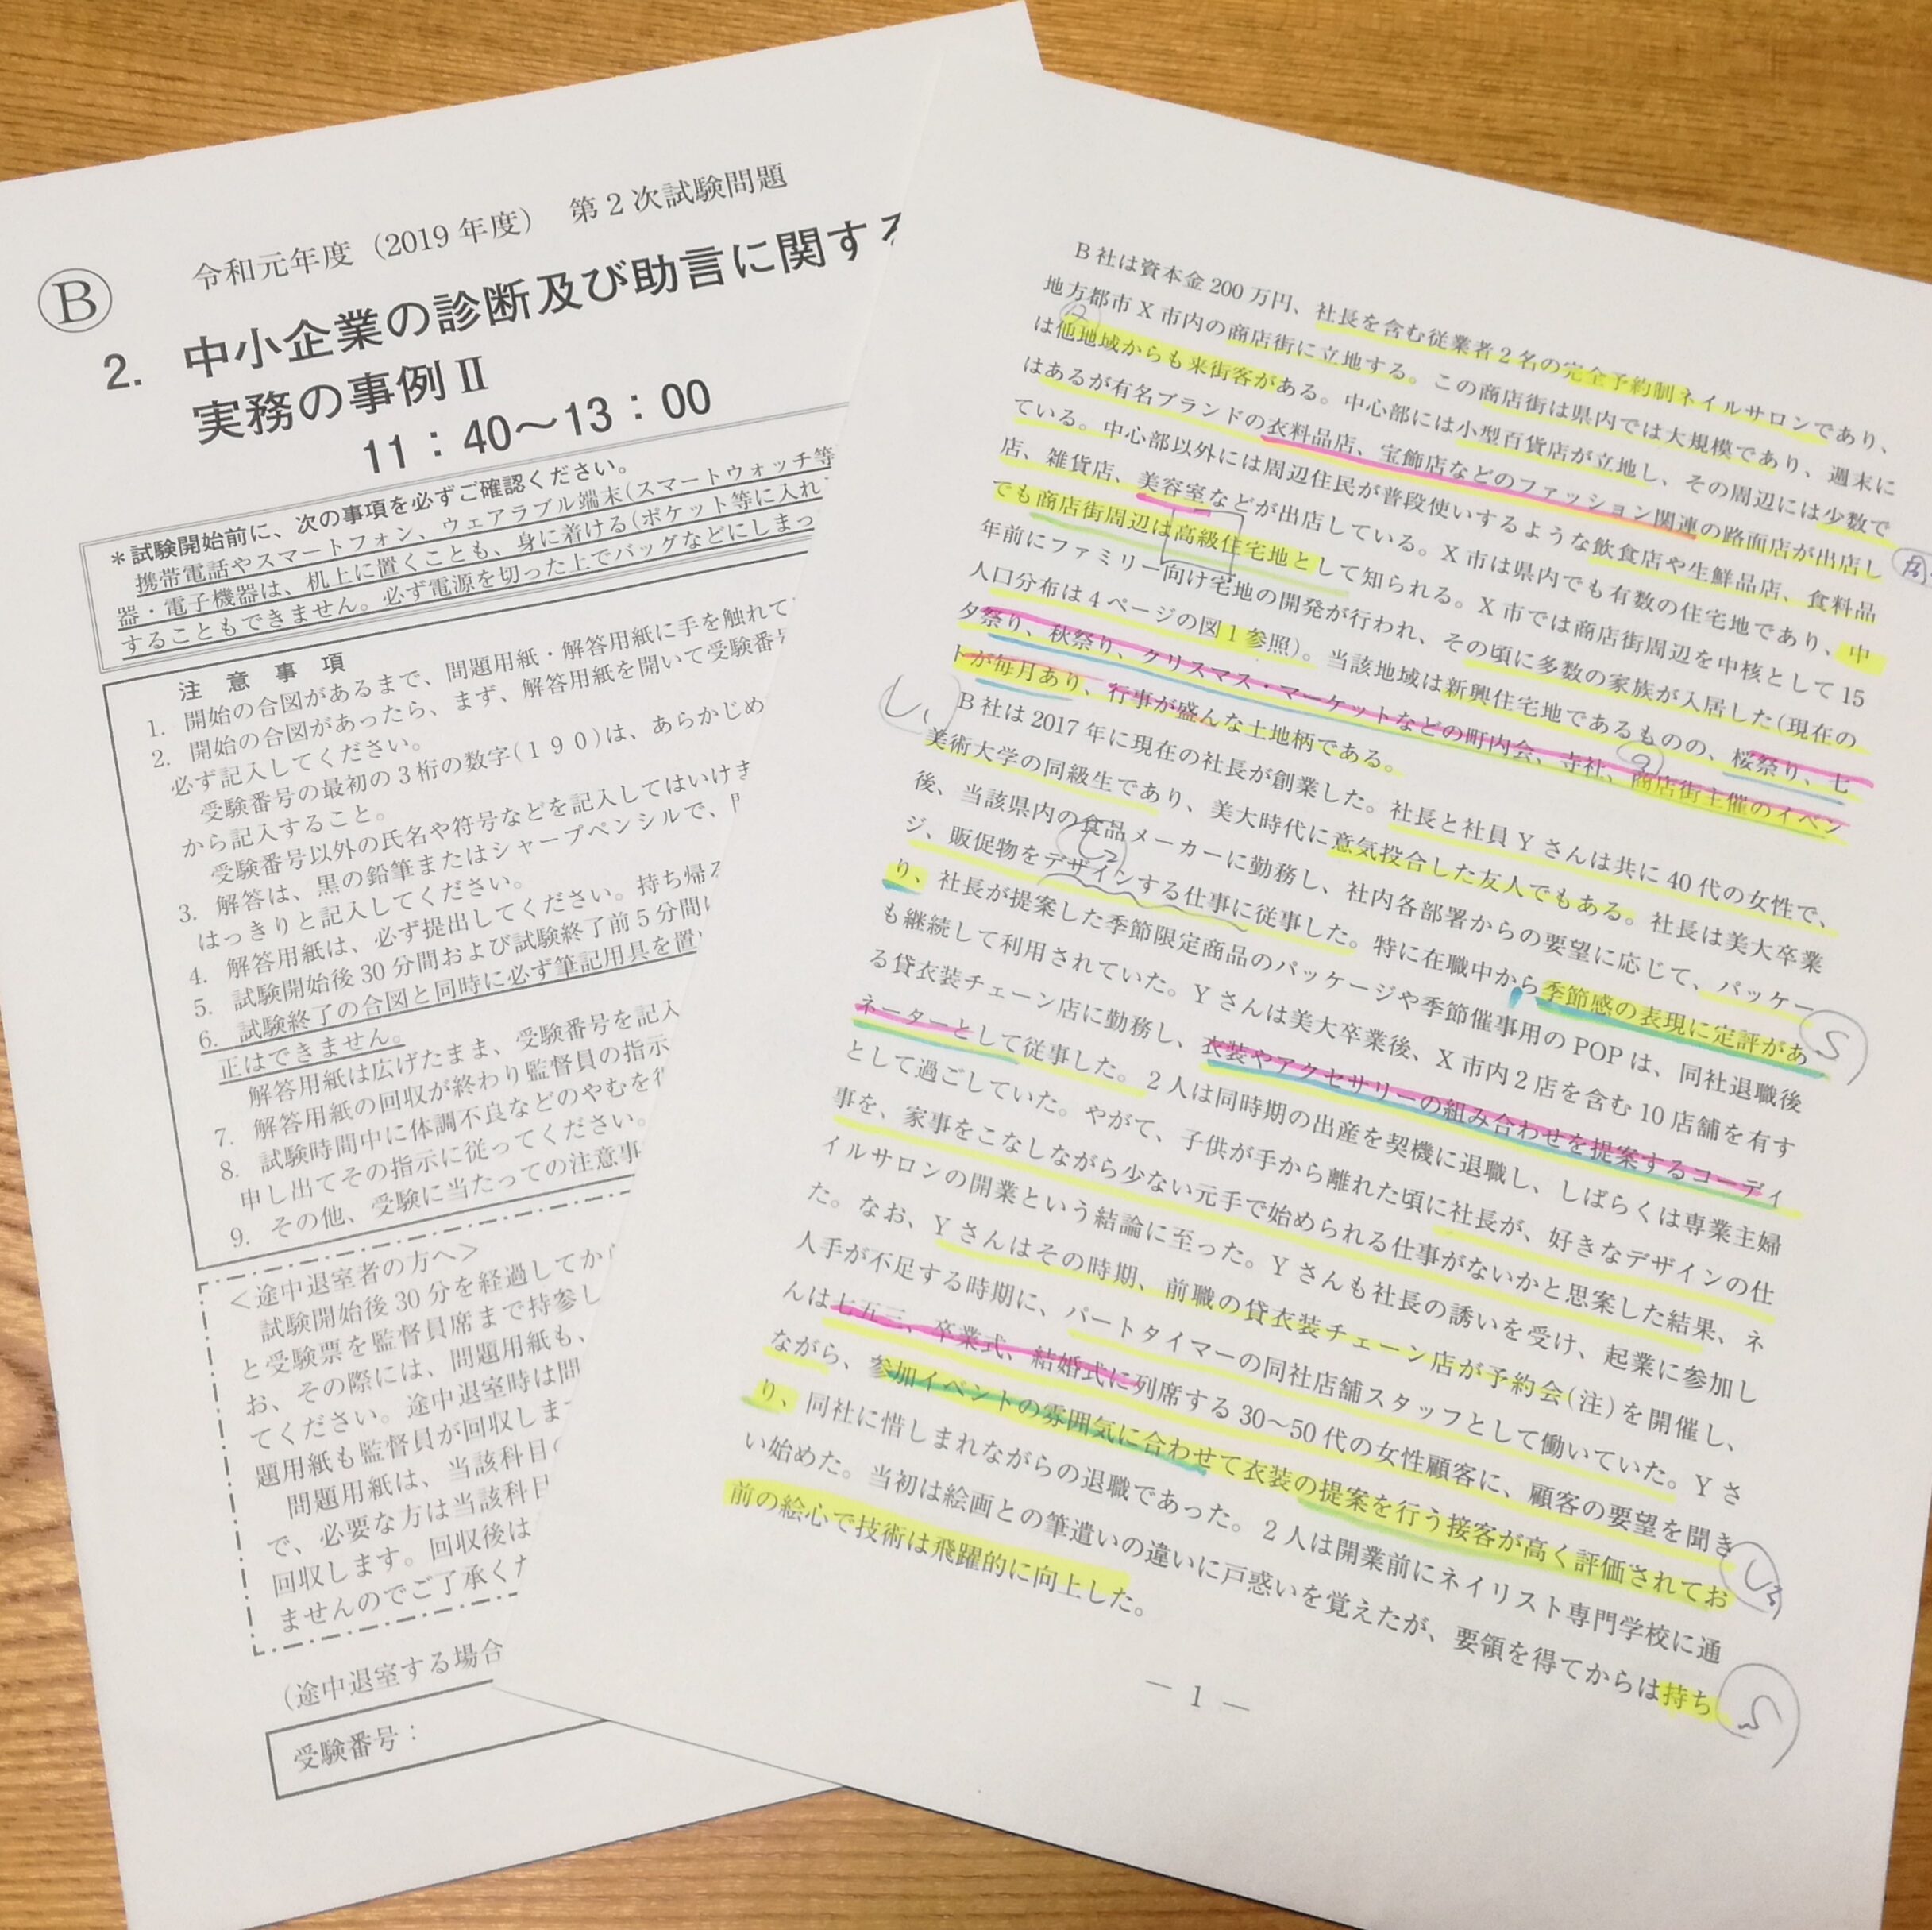 令和元年度（2019年度）　第2次試験問題
Ⓑ
2. 中小企業の診断及び助言に関する
実務の事例Ⅱ
11：40～13：00
＊試験開始前に、次の事項を必ずご確認ください。
携帯電話やスマートフォン、ウェアラブル端末(スマートウォッチ等
器・電子機器は、机上に置くことも、身に着ける(ポケット等に入れ
することもできません。必ず電源を切った上でバッグなどにしまっ
注　意　事　項
1. 開始の合図があるまで、問題用紙・解答用紙に手を触れて
2. 開始の合図があったら、まず、解答用紙を開いて受験番号
必ず記入してください。
受験番号の最初の3桁の数字(190)は、あらかじめ
から記入すること。
受験番号以外の氏名や符号などを記入してはいけま
3. 解答は、黒の鉛筆またはシャープペンシルで、
はっきりと記入してください。
4. 解答用紙は、必ず提出してください。持ち帰る
5. 試験開始後30分間および試験終了前5分間
6. 試験終了の合図と同時に必ず筆記用具を置
正はできません。
解答用紙は広げたまま、受験番号を記入
7. 解答用紙の回収が終わり監督員の指示
8. 試験時間中に体調不良などのやむを得
申し出てその指示に従ってください。
9. その他、受験に当たっての注意事
＜途中退室者の方へ＞
試験開始後30分を経過してから
と受験票を監督員席まで持参し
お、その際には、問題用紙も、
てください。途中退室時は問
題用紙も監督員が回収しま
問題用紙は、当該科目の
で、必要な方は当該科目
回収します。回収後は
ませんのでご了承くだ
(途中退室する場合
受験番号：
B社は資本金200万円、社長を含む従業者2名の完全予約制ネイルサロンであり、
地方都市X市内の商店街に立地する。この商店街は県内では大規模であり、週末に
は他地域からも来街客がある。中心部には小型百貨店が立地し、その周辺には少数で
はあるが有名ブランドの衣料品店、宝飾店などのファッション関連の路面店が出店し
ている。中心部以外には周辺住民が普段使いするような飲食店や生鮮品店、食料品
店、雑貨店、美容室などが出店している。X市は県内でも有数の住宅地であり、中
でも商店街周辺は高級住宅地として知られる。X市では商店街周辺を中核として15
年前にファミリー向け宅地の開発が行われ、その頃に多数の家族が入居した(現在の
人口分布は4ページの図1参照)。当該地域は新興住宅地であるものの、桜祭り、七
夕祭り、秋祭り、クリスマス・マーケットなどの町内会、寺社、商店街主催のイベン
トが毎月あり、行事が盛んな土地柄である。
B社は2017年に現在の社長が創業した。社長と社員Yさんは共に40代の女性で、
美術大学の同級生であり、美大時代に意気投合した友人でもある。社長は美大卒業
後、当該県内の食品メーカーに勤務し、社内各部署からの要望に応じて、パッケー
ジ、販促物をデザインする仕事に従事した。特に在職中から季節感の表現に定評があ
り、社長が提案した季節限定商品のパッケージや季節催事用のPOPは、同社退職後
も継続して利用されていた。Yさんは美大卒業後、X市内2店を含む10店舗を有す
る貸衣装チェーン店に勤務し、衣装やアクセサリーの組み合わせを提案するコーディ
ネーターとして従事した。2人は同時期の出産を契機に退職し、しばらくは専業主婦
として過ごしていた。やがて、子供が手から離れた頃に社長が、好きなデザインの仕
事を、家事をこなしながら少ない元手で始められる仕事がないかと思案した結果、ネ
イルサロンの開業という結論に至った。Yさんも社長の誘いを受け、起業に参加し
た。なお、Yさんはその時期、前職の貸衣装チェーン店が予約会(注)を開催し、
人手が不足する時期に、パートタイマーの同社店舗スタッフとして働いていた。Yさ
んは七五三、卒業式、結婚式に列席する30～50代の女性顧客に、顧客の要望を聞き
ながら、参加イベントの雰囲気に合わせて衣装の提案を行う接客が高く評価されてお
り、同社に惜しまれながらの退職であった。2人は開業前にネイリスト専門学校に通
い始めた。当初は絵画との筆遣いの違いに戸惑いを覚えたが、要領を得てからは持ち
前の絵心で技術は飛躍的に向上した。
― 1 ―